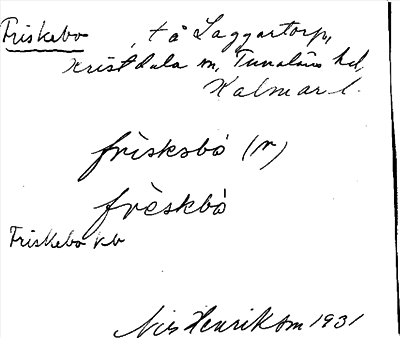 Friskebo, t å Laggartorp,
Kristdala sn, Tunaläns hd,
Kalmar l.
frisksbò (r)
frèskbò
Friskebo kb
Nils Henriksson 1931